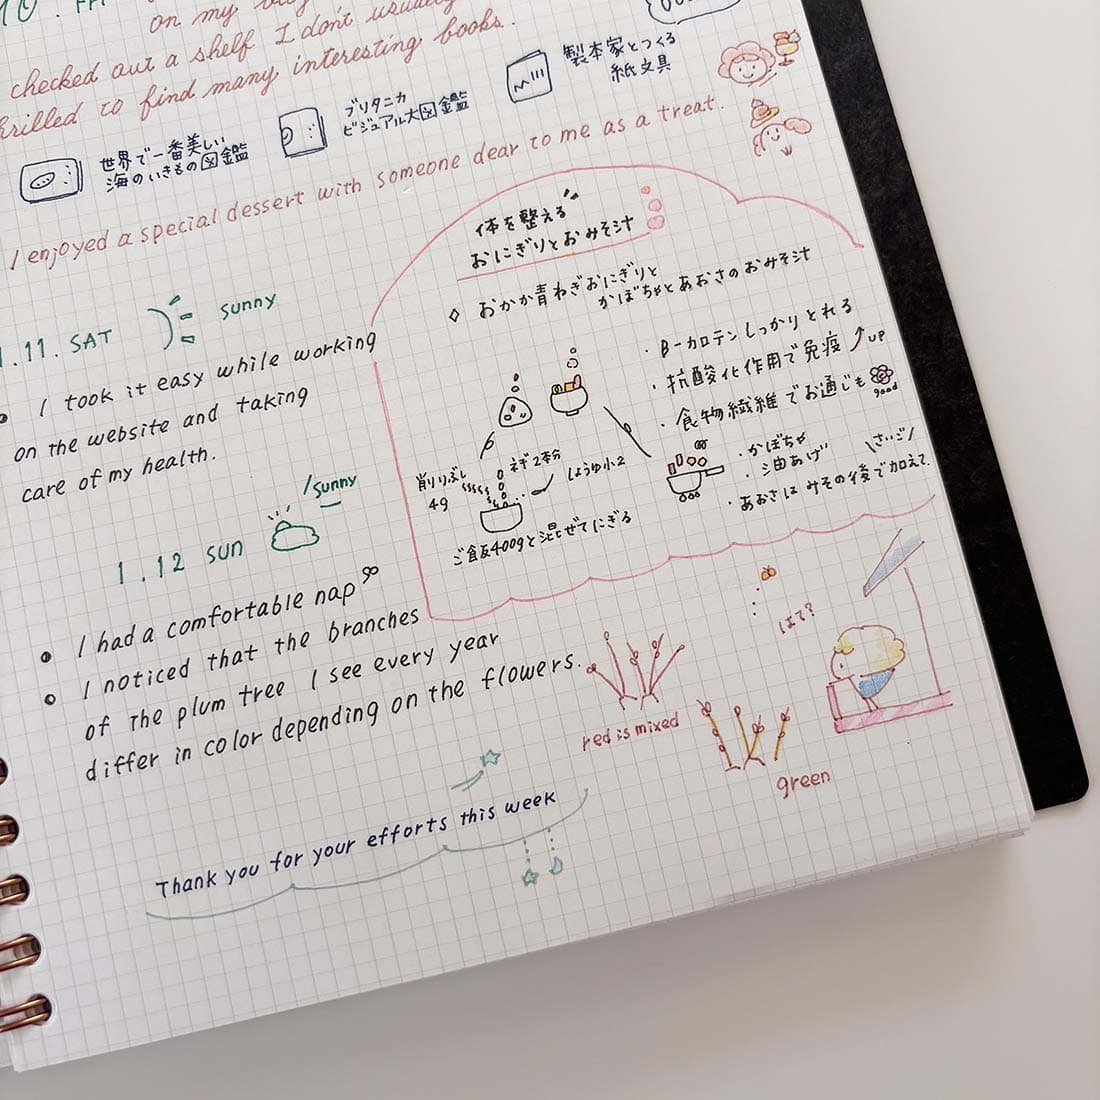 10. FRI
on my blog
checked out a shelf I don't usually
thrilled to find many interesting books.
世界で一番美しい
海のいきもの図鑑
ブリタニカ
ビジュアル大図鑑
製本家とつくる
紙文具
I enjoyed a special dessert with someone dear to me as a treat.
1.11. SAT
sunny
I took it easy while working
on the website and taking
care of my health.
1.12 SUN
sunny
I had a comfortable nap
I noticed that the branches
of the plum tree I see every year
differ in color depending on the flowers.
体を整える
おにぎりとおみそ汁
おかか青ねぎおにぎりと
かぼちゃとあおさのおみそ汁
・β-カロテンしっかりとれる
・抗酸化作用で免疫 up
・食物繊維でお通じも good
削りぶし
4g
ネギ2本分
しょうゆ小2
ご飯400gと混ぜてにぎる
・かぼちゃ
・油あげ
\さいご/
・あおさはみその後で加えて.
はて?
red is mixed
green
Thank you for your efforts this week